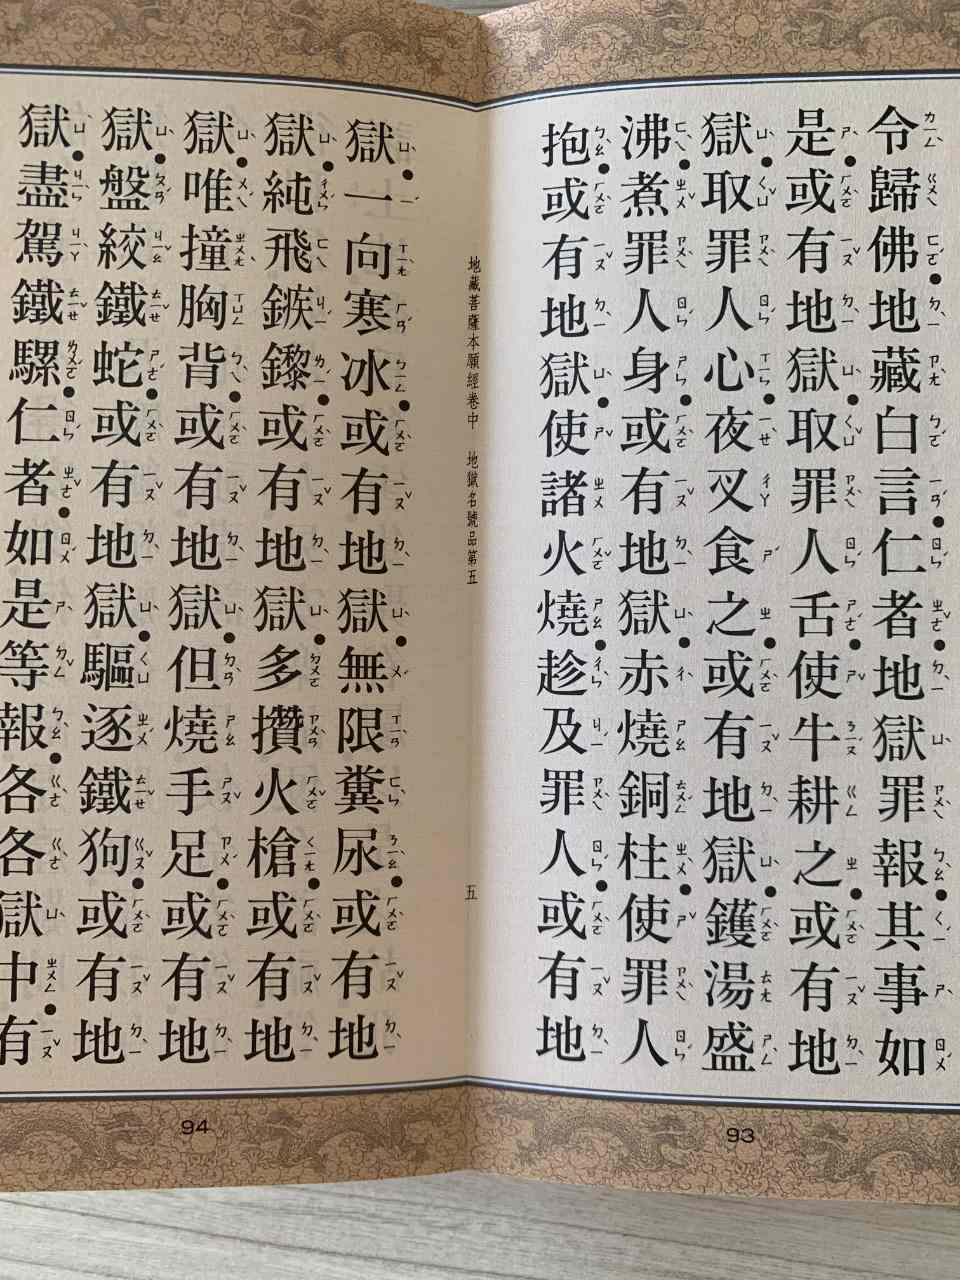 令歸佛地藏白言仁者地獄罪報其事如
是或有地獄取罪人舌使牛耕之或有地
獄取罪人心夜叉食之或有地獄鑊湯盛
沸煮罪人身或有地獄赤燒銅柱使罪人
抱或有地獄使諸火燒趁及罪人或有地
地藏菩薩本願經卷中 地獄名號品第五 五
獄一向寒冰或有地獄無限糞尿或有地
獄純飛鏃鑗或有地獄多攢火槍或有地
獄唯撞胸背或有地獄但燒手足或有地
獄盤絞鐵蛇或有地獄驅逐鐵狗或有地
獄盡駕鐵騾仁者如是等報各各獄中有
93
94